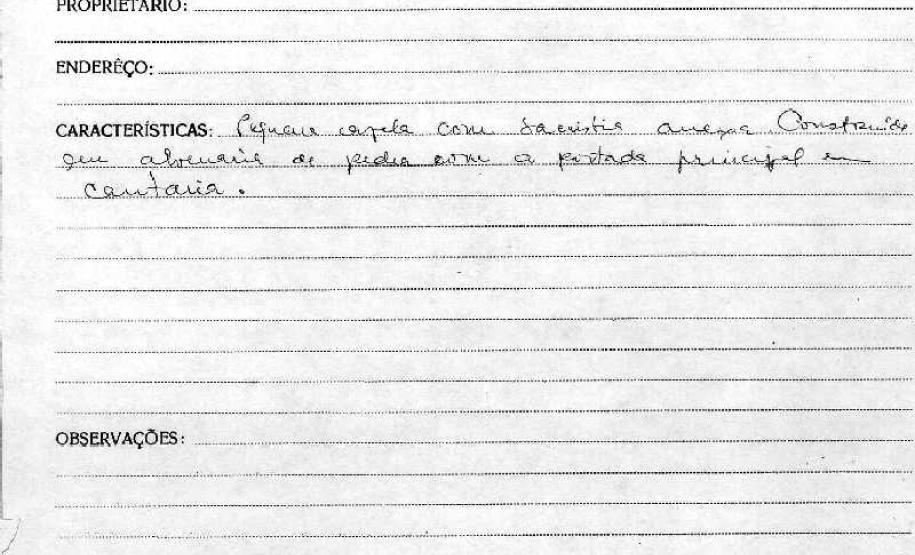 PROPRIETÁRIO:
ENDERÊÇO:
CARACTERÍSTICAS: Pequena capela com sacristia anexa. Construida
em alvenaria de pedra com a portada principal em
cantaria.
OBSERVAÇÕES: